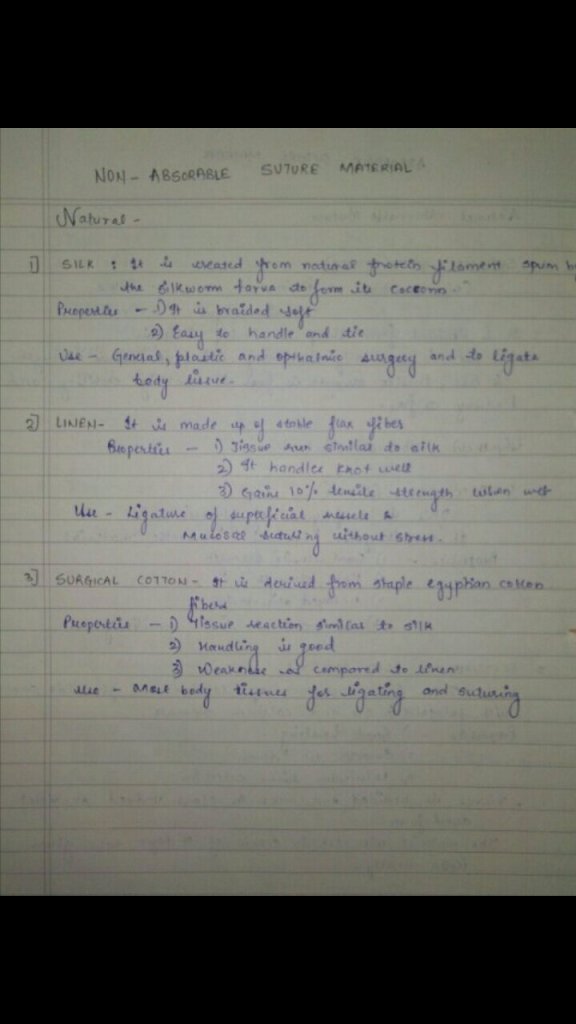 NON - ABSORABLE SUTURE MATERIAL
Natural -
1] SILK : It is created from natural protein filament spun by
the silkworm larva to form its cocoon.
Properties - 1) It is braided soft
2) Easy to handle and tie
Use - General, plastic and opthalmic surgery and to ligate
body tissue.
2] LINEN - It is made up of stable flax fiber
Properties - 1) Tissue run similar to silk
2) It handles knot well
3) Gains 10% tensile strength when wet
Use - Ligature of superficial vessels &
Mucosal suturing without stress.
3] SURGICAL COTTON - It is derived from staple egyptian cotton
fibers
Properties - 1) Tissue reaction similar to silk
2) Handling is good
3) Weakness as compared to linen
Use - Most body tissues for ligating and suturing